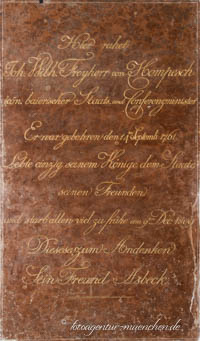 Hier ruhet
Joh. Wilh. Freyherr von Hompesch
kön. baierscher Staats und Conferenzminister
Er war gebohren den 1. Septemb. 1761.
Lebte einzig seinem Könige dem Staate
seinen Freunden
und starb allen viel zu frühe am 9. Dec. 1809
Dieses zum Andenken
Sein Freund Asbeck
fotoagentur-muenchen.de